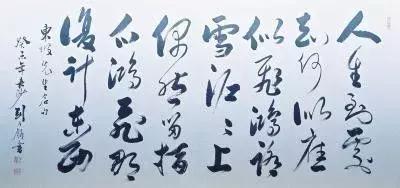 人生到處
知何似應
似飛鴻踏
雪泥々上
偶然留指
爪鴻飛那
復計東西
東坡先生名句
癸未年 劉 書